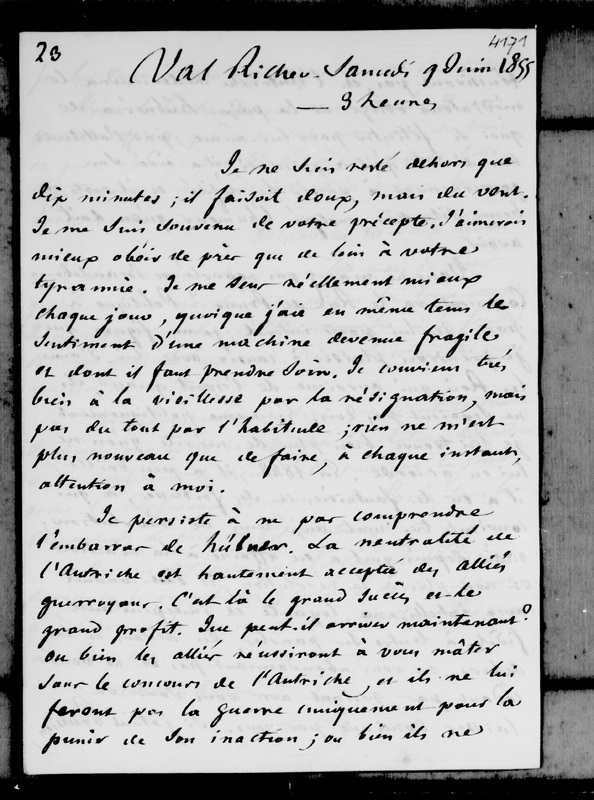 23
4171
Val Richer. Samedi 9 Juin 1855
3 heures
Je ne suis resté dehors que
dix minutes ; il faisoit doux, mais du vent.
Je me suis souvenu de votre précepte. J'aimerois
mieux obéir de près que de loin à votre
tyrannie. Je me sens réellement mieux
chaque jour, quoique j'aie en même tems le
sentiment d'une machine devenue fragile
et dont il faut prendre soin. Je conviens très
bien à la vieillesse par la résignation, mais
pas du tout par l'habitude ; rien ne m'est
plus nouveau que de faire, à chaque instant,
attention à moi.
Je persiste à ne pas comprendre
l'embarras de Hübner. La neutralité de
l'Autriche est hautement acceptée des alliés
guerroyans. C'est là le grand succès et le
grand profit. Que peut-il arriver maintenant ?
ou bien les alliés réussiront à vous mâter
sans le concours de l'Autriche, et ils ne lui
feront pas la guerre uniquement pour la
punir de son inaction ; ou bien ils ne